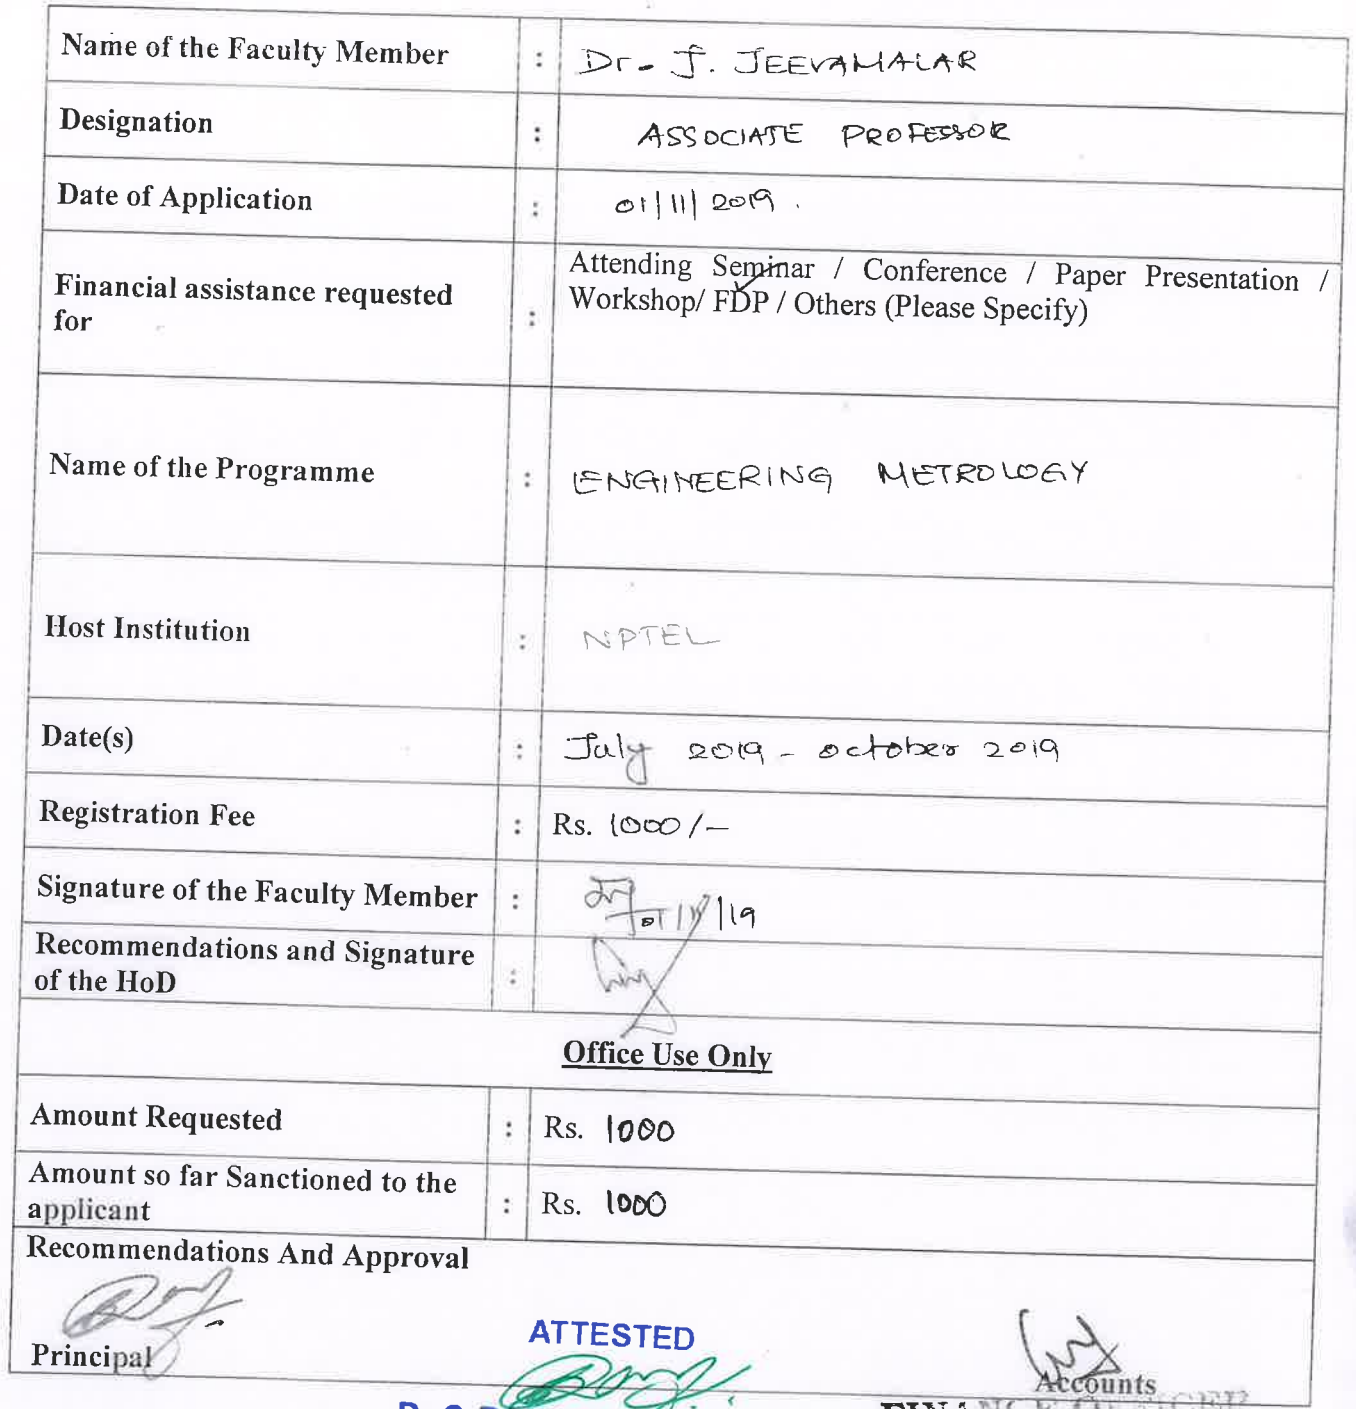 Name of the Faculty Member : Dr. J. JEEVAMALAR
Designation : ASSOCIATE PROFESSOR
Date of Application : 01/11/2019.
Financial assistance requested
for
:
Attending Seminar / Conference / Paper Presentation /
Workshop/ FDP / Others (Please Specify)
Name of the Programme : ENGINEERING METROLOGY
Host Institution : NPTEL
Date(s) : July 2019 - october 2019
Registration Fee : Rs. 1000/-
Signature of the Faculty Member : 01/11/19
Recommendations and Signature
of the HoD
:
Office Use Only
Amount Requested : Rs. 1000
Amount so far Sanctioned to the
applicant
: Rs. 1000
Recommendations And Approval
ATTESTED
Principal
Accounts